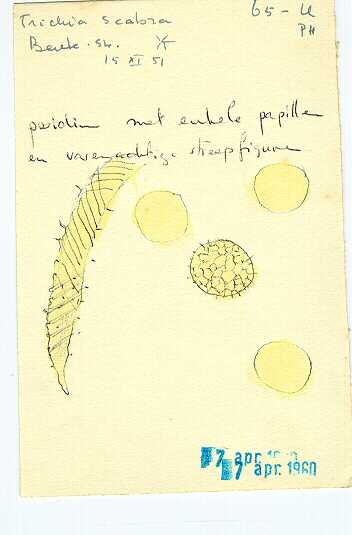 Trichia scabra
65 - U
Beek. Sk.
PH
15 XI 51
peridium met enkele papillen
en varenachtige streepfiguren
7 apr. 19
7 apr. 1960